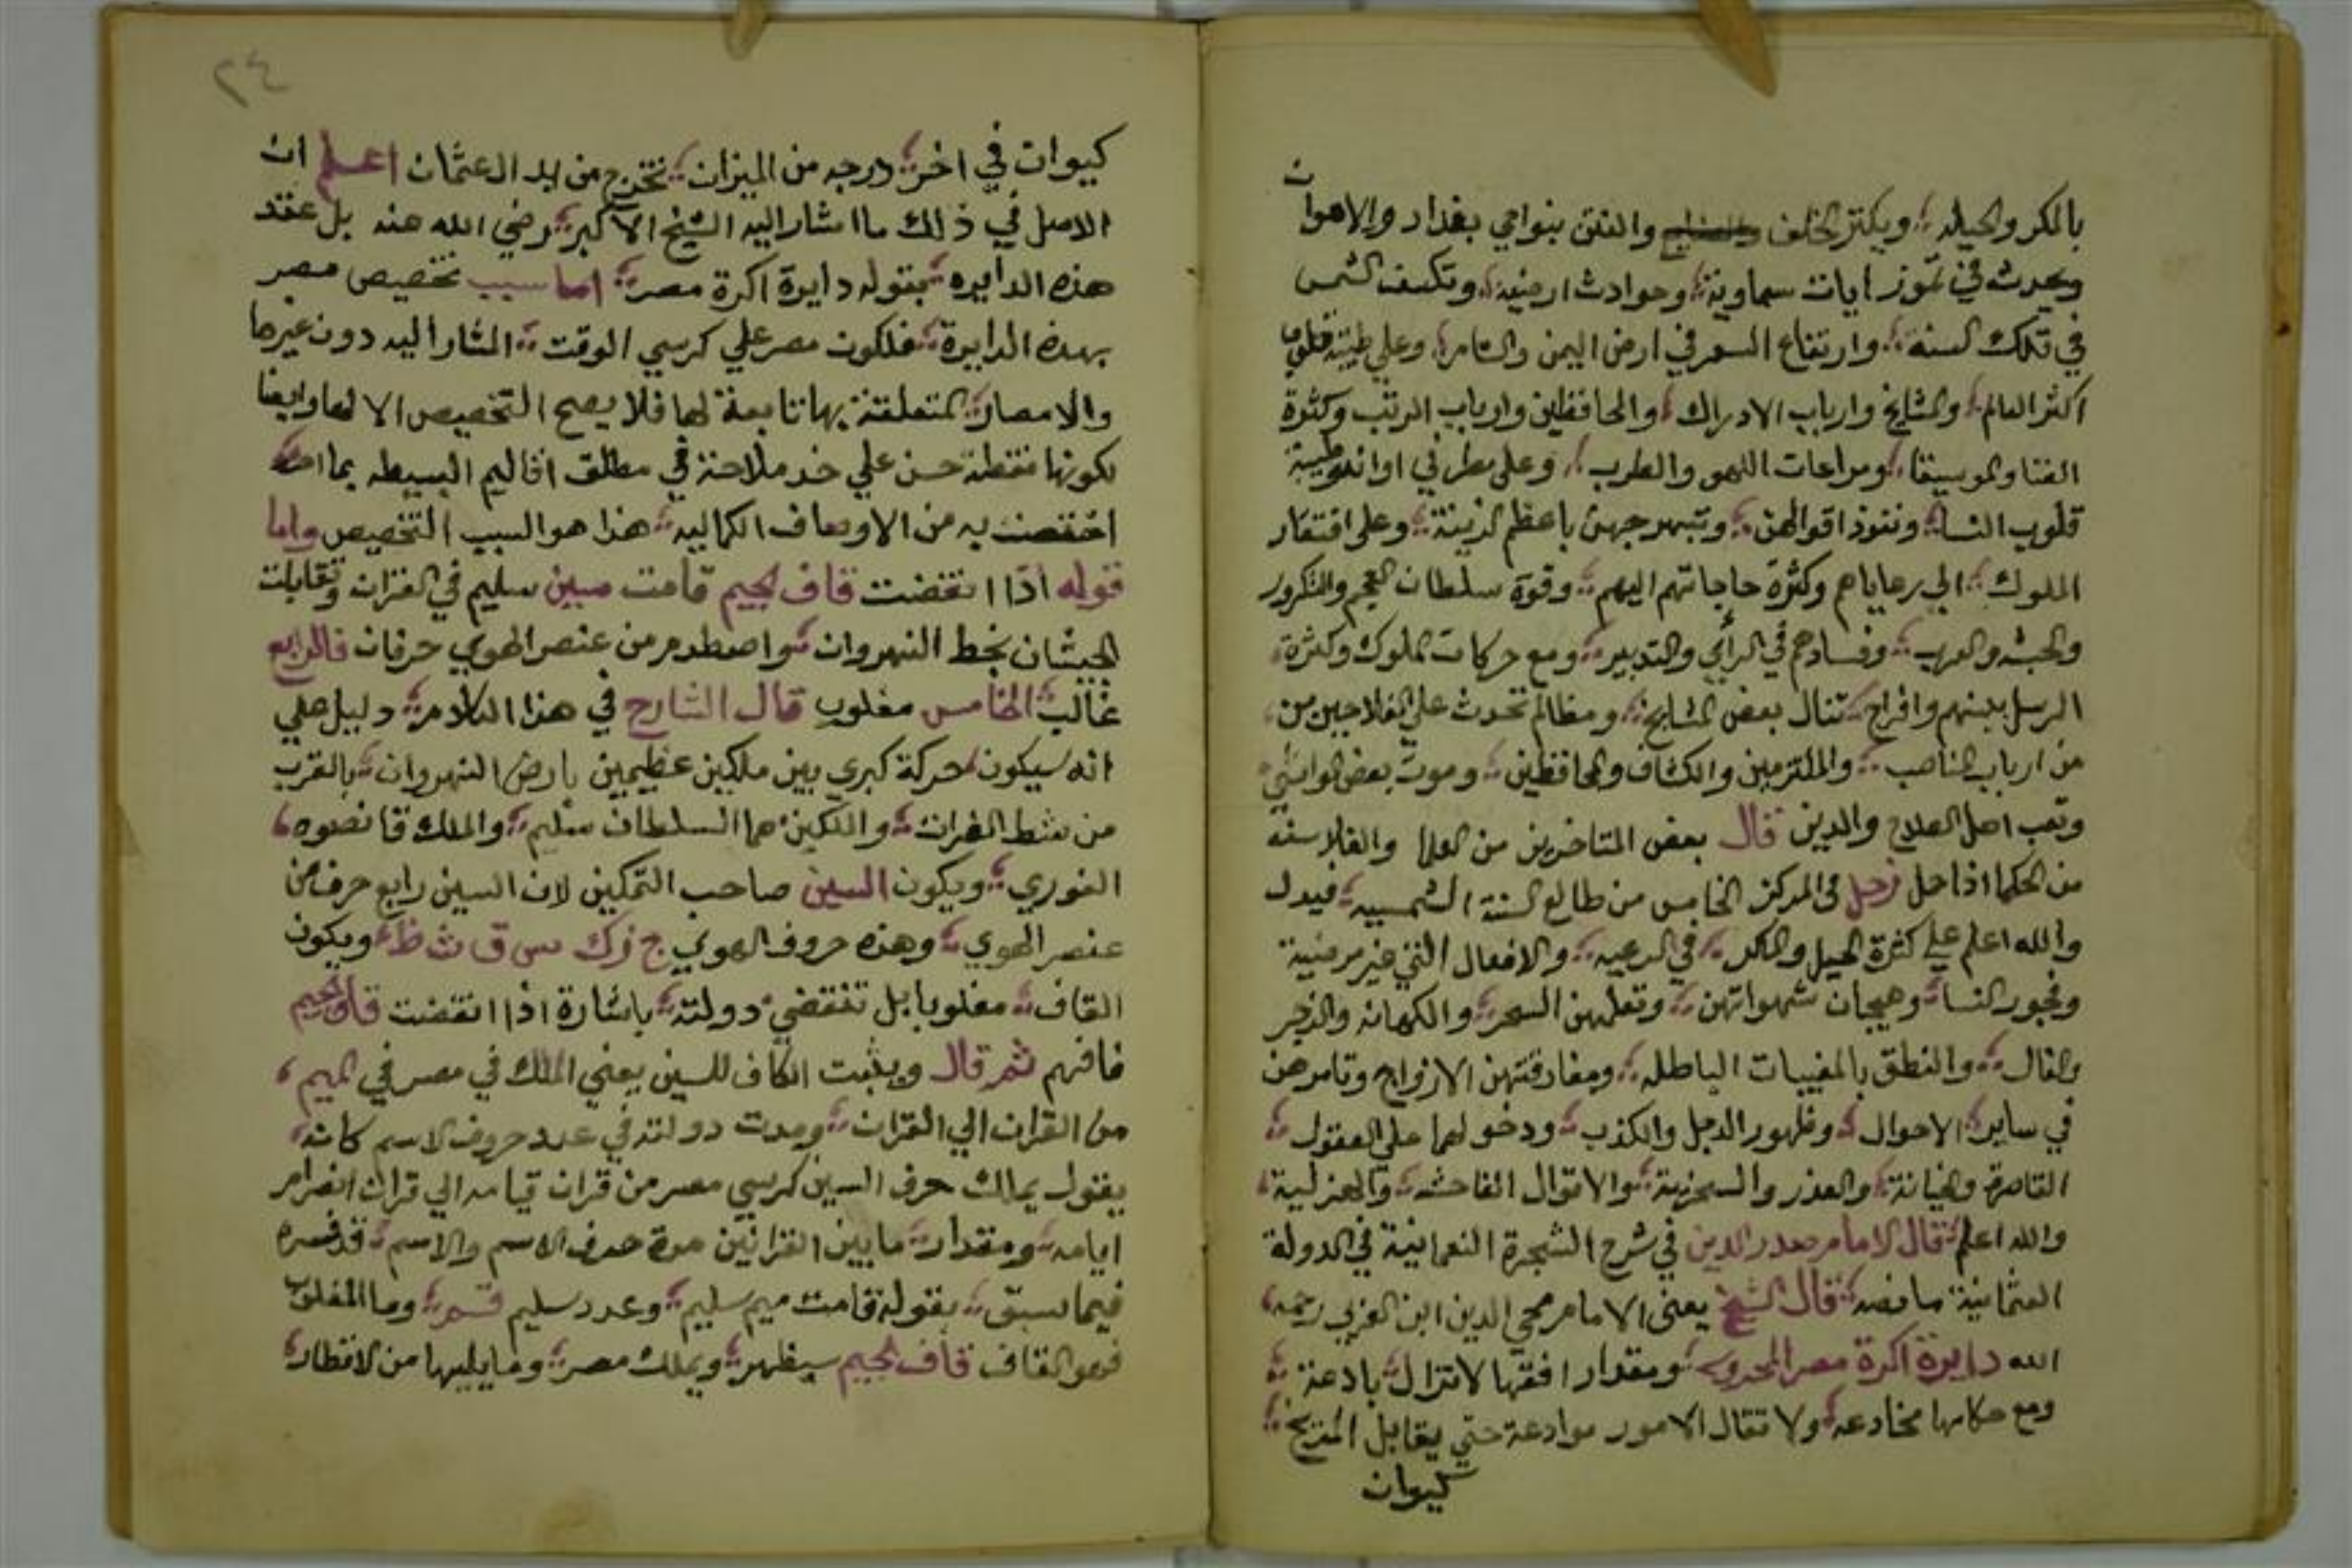 بالمكر والحيله ويكثر الخلف والفتن بنواحي بغداد والاهوان
ويحدث في تموز ايات سماوية وحوادث ارضيه وتكسف الشمس
في تلك السنة وارتفاع السعر في ارض اليمن والشام وعلي طيبة قلوب
اكثر العالم والمشايخ وارباب الادراك والحافظين وارباب الرتب وكثرة
الغنا والموسيقا ومراعات اللهو والطرب وعلى مطر في اوانه وطيبة
قلوب النسا ونفوذ اقوالهن وتبهرجهن باعظم الزينة وعلى افتقار
الملوك الي رعاياهم وكثرة حاجاتهم اليهم وقوة سلطان العجم والتكرور
والحبشه والعرب وفسادهم في الرأي والتدبير ومع حركات الملوك وكثرة
الرسل بينهم وافراح تنال بعض المشايخ ومظالم تحدث علي الفلاحين من
من ارباب المناصب والملتزمين والكشاف والحافظين وموت بعض المواشي
وتعب اهل الصلاح والدين قال بعض المتاخرين من العلما والفلاسفه
من الحكما اذا حل زحل في المركز الخامس من طالع السنة الشمسيه فيدل
والله اعلم علي كثرة الحيل والمكر في الرعيه والافعال التي غير مرضية
وفجور النسا وهيجان شهواتهن وتعلمهن السحر والكهانه والزجر
والفال والنطق بالمغيبات الباطله ومفارقتهن الازواج وتامرهن
في ساير الاحوال وظهور الدجل والكذب ودخولهما علي العقول
القاصرة والخيانة والعذر والسخرية والاقوال الفاحشه والهزلية
والله اعلم قال الامام صدر الدين في شرح الشجرة النعمانية في الدولة
العثمانية ما نصه قال الشيخ يعنى الامام محي الدين ابن العربي رحمه
الله دايرة اكرة مصر المحروسه ومقدار افقها لا تزال بادعة
ومع حكامها مخادعه ولا تقال الامور موادعة حتي يقابل المريخ
كيوان
٢٤
كيوان في اخر درجه من الميزان تخرج من يد ال عثمان اعلم ان
الاصل في ذلك ما اشار اليه الشيخ الاكبر رضي الله عنه بل عقد
هذه الدايره بقوله دايرة اكرة مصر اما سبب تخصيص مصر
بهذه الدايرة فلكون مصر علي كرسي الوقت المشار اليه دون غيرها
والامصار المتعلقة بها تابعة لها فلا يصح التخصيص الا لها وايضا
لكونها نقطة حسن علي خد ملاحة في مطلق اقاليم البسيطه بما
اختصت به من الاوصاف الكماليه هذا هو السبب التخصيص واما
قوله اذا انقضت قاف الجيم قامت سين سليم في القران وتقابلت
الجيشان بخط النهروان واصطدم من عنصر الهوي حرفان فالرابع
غالب الخامس مغلوب قال الشارح في هذا الكلام دليل علي
انه سيكون حركة كبري بين ملكين عظيمين بارض النهروان بالقرب
من شط الفرات والملكين هما السلطان سليم والملك قانصوه
الغوري ويكون السين صاحب التمكين لان السين رابع حرف من
عنصر الهوي وهذه حروف الهوي ج ز ك س ق ث ظ ويكون
القاف مغلوبا بل تنقضي دولته باشارة اذا انقضت قاف الجيم
فافهم ثم قال ويثبت الكاف للسين يعني الملك في مصر في الميم
من القران الي القران ومدت دولته في عدد حروف الاسم كانه
يقول يملك حرف السين كرسي مصر من قران قيامه الي قران انصرام
ايامه ومقدار ما بين القرانين مدة حرف الاسم والاسم قد فسره
فيما سبق بقوله قامت ميم سليم وعدد سليم قسم وما المغلوب
فهو القاف قاف الجيم سيظهر ويملك مصر وما يليها من الاقطار